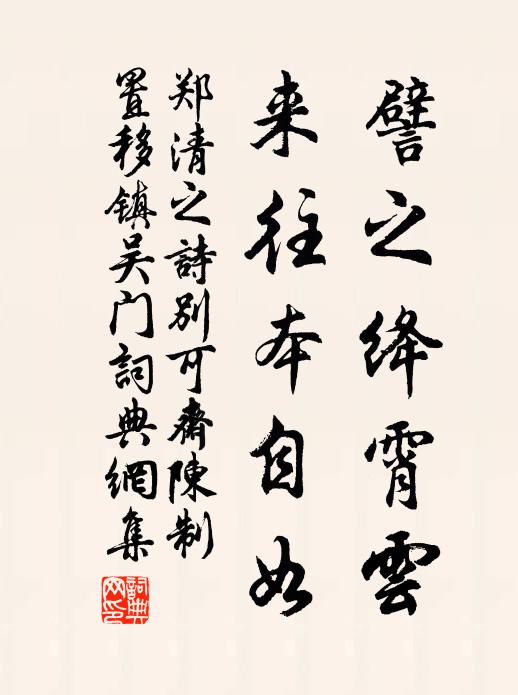 譬之绛霄雲
来往本自如
郑清之詩别可齋陳制
置移镇吴门詞典網集
詞典网印